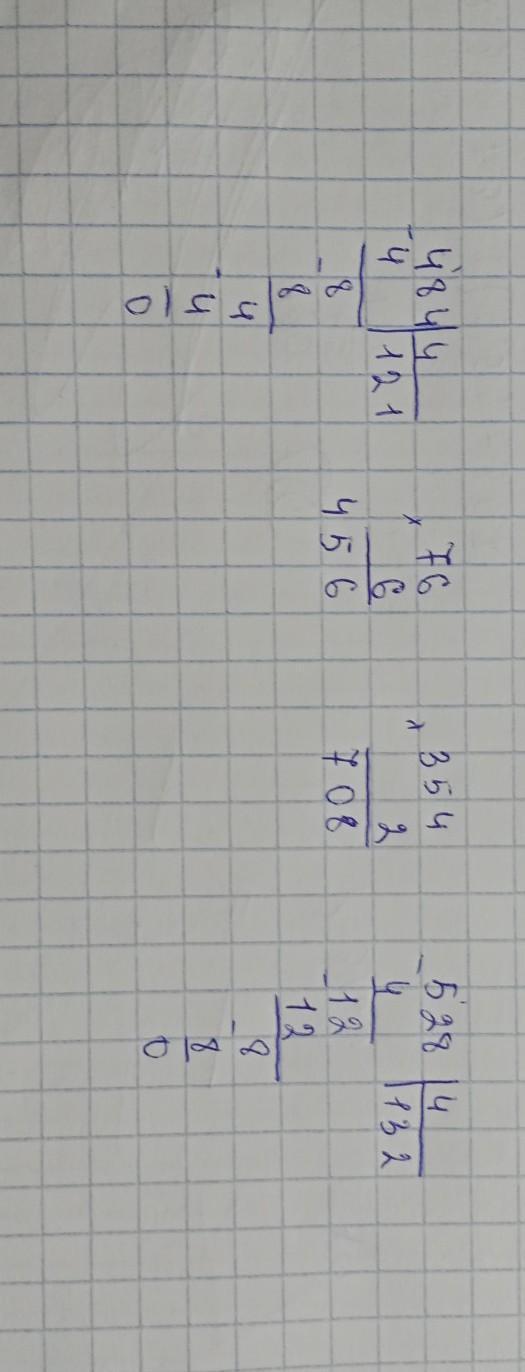 484 | 4
-4 | 121
-8
8
-4
4
0
× 76
6
456
× 354
2
708
-528 | 4
4 | 132
-12
12
-8
8
0